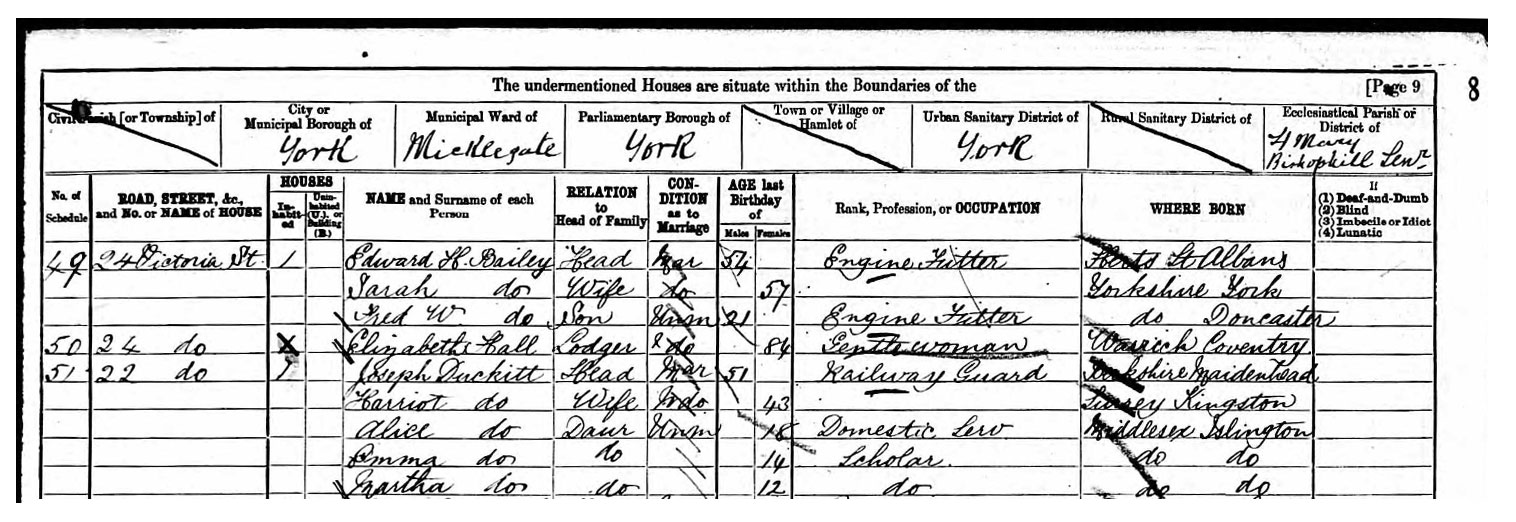 The undermentioned Houses are situate within the Boundaries of the [Page 9 8
Civil Parish [or Township] of City or Municipal Borough of Municipal Ward of Parliamentary Borough of Town or Village or Hamlet of Urban Sanitary District of Rural Sanitary District of Ecclesiastical Parish or District of
York Micklegate York York St Mary Bishophill Senr
No. of Schedule ROAD, STREET, &c., and No. or NAME of HOUSE HOUSES Inhabited Uninhabited (U.), or Building (B.) NAME and Surname of each Person RELATION to Head of Family CONDITION as to Marriage AGE last Birthday of Males Females Rank, Profession, or OCCUPATION WHERE BORN If (1) Deaf-and-Dumb (2) Blind (3) Imbecile or Idiot (4) Lunatic
49 24 Victoria St. 1 Edward H. Bailey Head Mar 54 Engine Fitter Herts St Albans
Sarah do Wife do 57 Yorkshire York
Fred W. do Son Unm 21 Engine Fitter do Doncaster
50 24 do X Elizabeth Hall Lodger do 84 Gentlewoman Warwich Coventry
51 22 do 1 Joseph Duckitt Head Mar 51 Railway Guard Berkshire Maidenhead
Harriot do Wife do 43 Surrey Kingston
Alice do Daur Unm 18 Domestic Serv Middlesex Islington
Emma do do 14 Scholar. do do
Martha do do 12 do do do